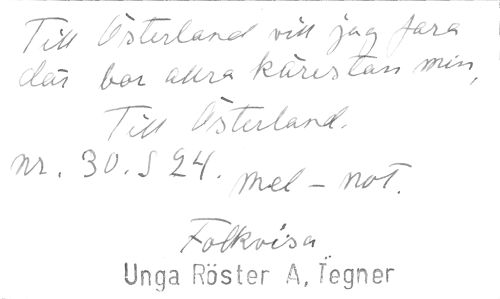 Till Österland vill jag fara
där bor allra käristan min,
Till Österland.
nr. 30. S 24. mel - not.
Folkvisa
Unga Röster A, Tegner